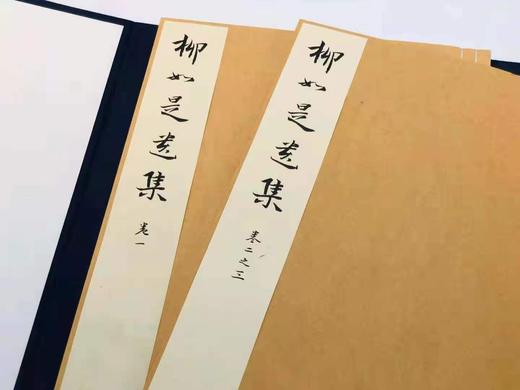 柳如是遗集
卷一
柳如是遗集
卷二之三